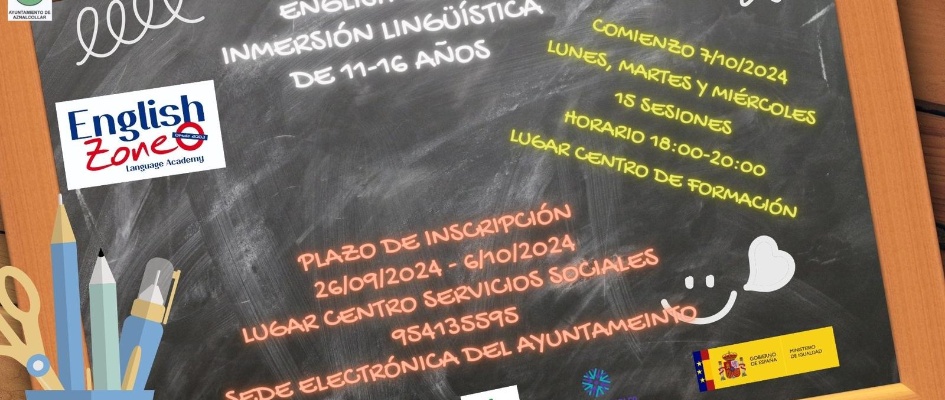 AYUNTAMIENTO DE
AZNALCÓLLAR
ENGLISH
INMERSIÓN LINGÜÍSTICA
DE 11-16 AÑOS
COMIENZO 7/10/2024
LUNES, MARTES Y MIÉRCOLES
15 SESIONES
HORARIO 18:00-20:00
LUGAR CENTRO DE FORMACIÓN
English
Zone
Language Academy
PLAZO DE INSCRIPCIÓN
26/09/2024 - 6/10/2024
LUGAR CENTRO SERVICIOS SOCIALES
954135595
SEDE ELECTRÓNICA DEL AYUNTAMEINTO
GOBIERNO
DE ESPAÑA
MINISTERIO
DE IGUALDAD